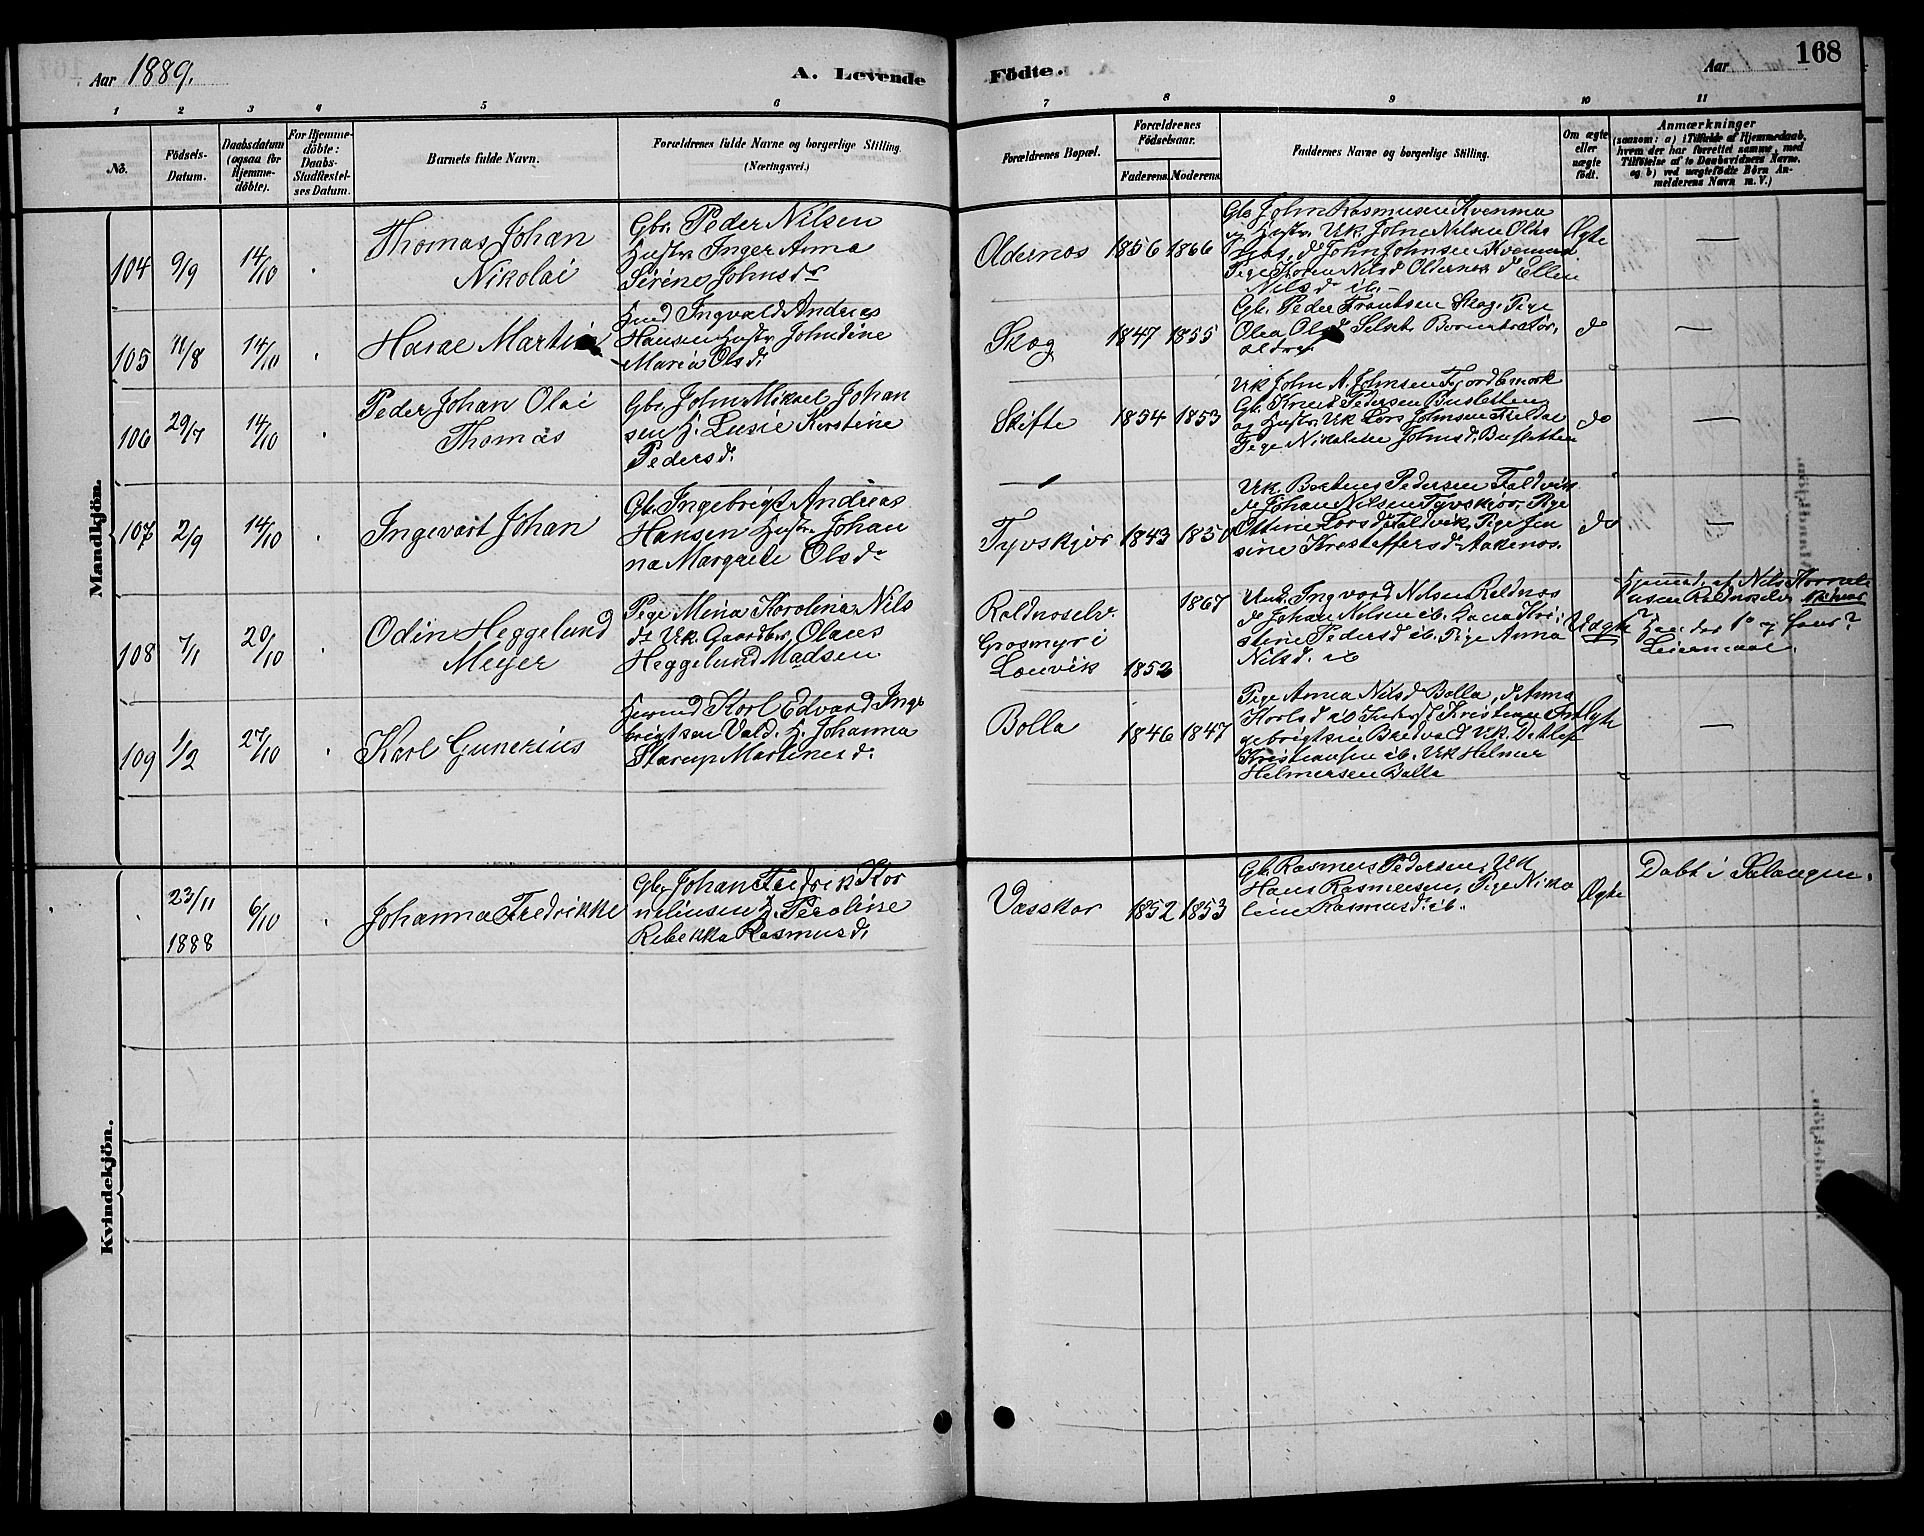 Aar 1889.
A. Levende
Födte.
Aar
168
1
2
3
4
5
6
7
8
9
10
11
No.
Födsels-
Datum.
Daabsdatum
(ogsaa for
Hjemme-
döbte).
For Hjemme-
döbte:
Daabs-
Stadfæstel-
ses Datum.
Barnets fulde Navn.
Forældrenes fulde Navne og borgerlige Stilling.
(Næringsvei.)
Forældrenes Bopæl.
Forældrenes
Födselsaar.
Faderens
Moderens
Faddernes Navne og borgerlige Stilling.
Om ægte
eller
uægte
födt.
Anmærkninger
(saasom: a) i Tilfælde af Hjemmedaab,
hvem der har forrettet samme, med
Tilföielse af to Daabsvidners Navne,
og b) ved uægtefödte Börn An-
melderens Navn m. V.)
Mandkjön.
104 9/9 14/10
Thomas Johan
Nikolai
Gbr. Peder Nilsen
Hustr Inger Anna
Sirene Johnsdr
Oldernos 1856 1866
Gb John Rasmusen Kvenmo
og Hustr. Uk. John Nilsen
d John Johnsen
Pige Nilsd Ellen
Nilsd ib.
Ægte
—
105 11/8 14/10
Martin
Ingvald Andreas
Hansen Hustr Johndine
Maria Olsd.
Skog 1847 1855
Gb. Peder Frantsen Skog. Pige
Olea Olsd Selset. Bornets For-
ældre.
do
—
106 29/7 14/10
Peder Johan Olai
Thomas
Gbr. John Mikael Johan
sen H. Lusie Kirstine
Pedersd.
Skifte 1854 1853
Uk John A. Johnsen Fjordbmork
Gb. Knud Pedersen Busletten
og Hustr. Uk Lars Johnsen
Pige Nikoline Johnsd. Busletten
do
—
107 2/9 14/10
Ingevart Johan
Gb. Ingebrigt Andreas
Hansen Hustr. Johan
na Margrete Olsdr
Tyvskjor 1843 1850
Uk. Pedersen Faldvik
de Johan Nilsen Tyvskjor, Pige
Larsd Faldvik, Pige Jen
sine Kristoffersdr Aakenos.
do
—
108 7/1 20/10
Odin Heggelund
Meyer
Pige Mina Karolina Nils
dr Uk. Gaardbr. Olaus
Heggelund Madsen
Roldnoselv.
Grosmyr i
Lanvik 1852 1867
Ungk. Ingvard Nilsen Roldnos
de Johan Nilsen ib. Lana Kri
stine Pedersd ib. Pige Anna
Nilsd. ib
Uægte
Hjemmd. af Nils
Roldnoselv
Leiermaal.
109 1/2 27/10
Karl Gunerius
Karl Edvard Inge
brigtsen Vald. H. Johanna
Starup Martinesd.
Bolla 1846 1847
Pige Anna Nilsd Bolla, d Anna
Karlsd ib Kristian In
gebrigtsen Uk. Detlef
Kristiansen ib. Uk Helmer
Helmersen Bolla
Ægte
—
Kvindekjön.
23/11
1888
6/10
Johanna Fredrikke
Gb. Johan Fredrik Kor
nelinsen H. Peroline
Rebekka Rasmusd.
Vasskar 1852 1853
Gb. Rasmus Pedersen, Uk
Hans Rasmussen, Pige Niko
line Rasmusd. ib.
Ægte
Døbt i Salangen.